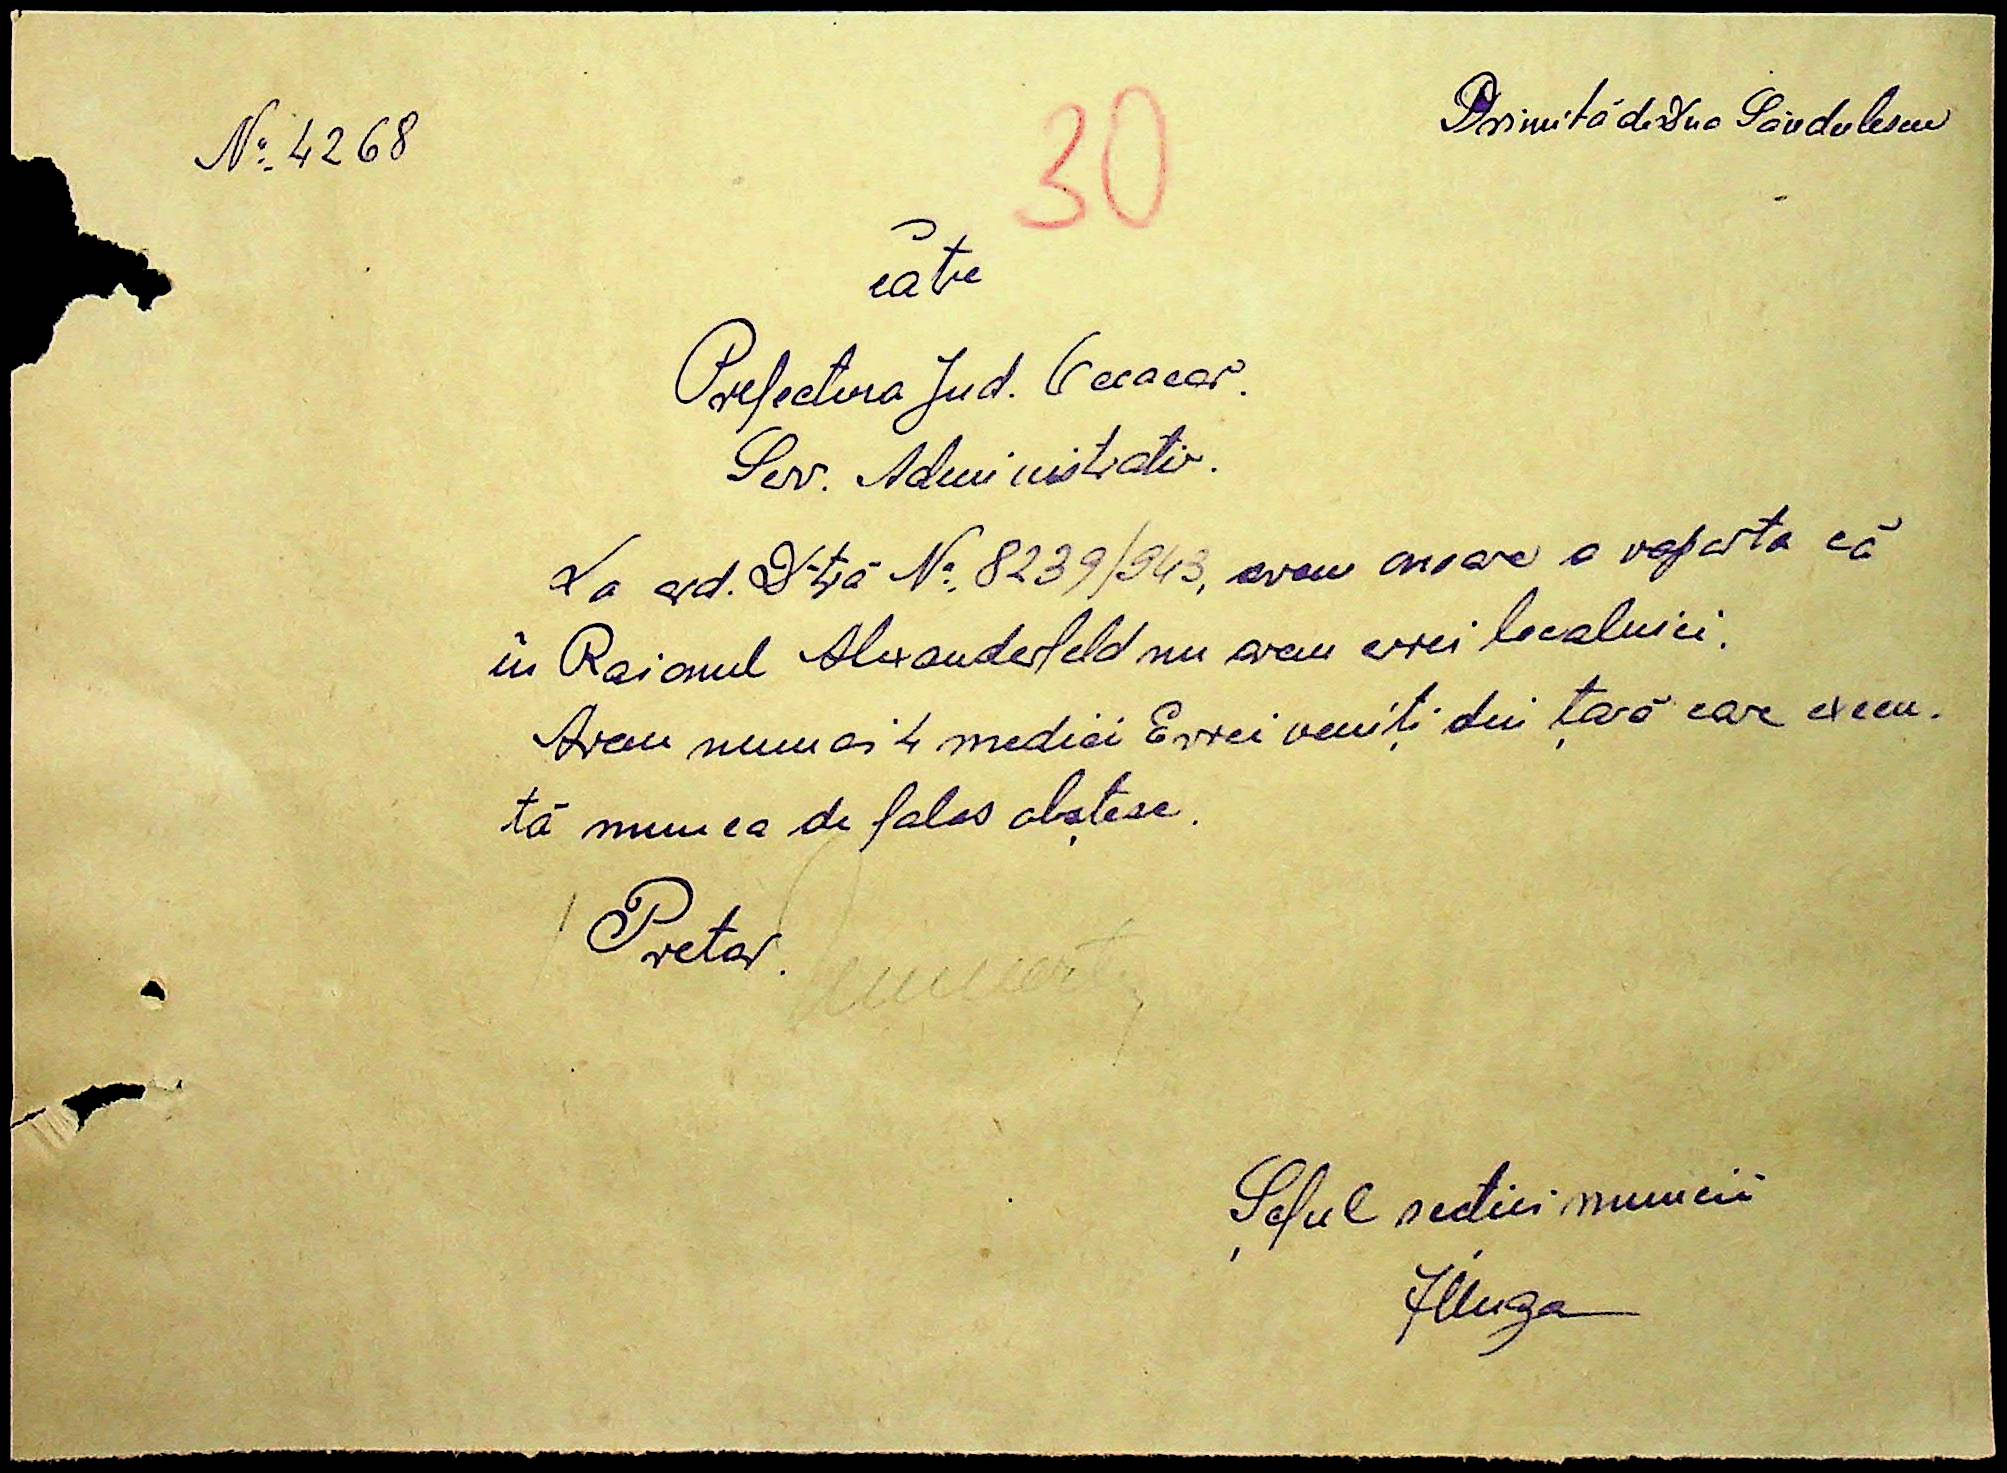 No. 4268
30
Primită de Dna Săndulescu
Către
Prefectura Jud. Oceacov.
Serv. Administrativ.
La ord. D-tră No. 8239/943, avem onoare a raporta că
în Raionul Alexanderfeld nu avem evrei localnici.
Avem numai 4 medici Evrei veniți din țară care execu-
tă munca de folos obștesc.
Pretor.
Șeful secției muncii